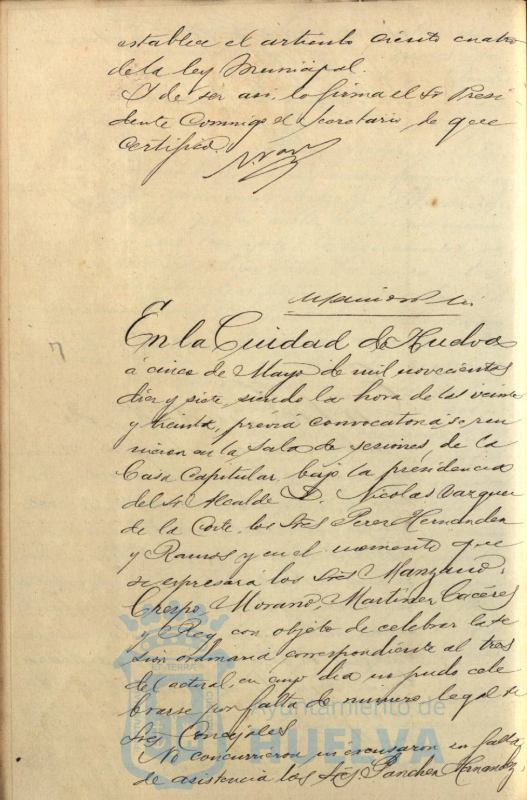 establece el artículo ciento cuatro
de la ley Municipal.
Y de ser así, lo firma el Sr Presi
dente conmigo el Secretario, de que
certifico.
En la Ciudad de Huelva
á cinco de Mayo de mil novecientos
diez y siete, siendo la hora de las veinte
y treinta, previa convocatoria se reu
nieron en la Sala de sesiones, de la
Casa Capitular, bajo la presidencia
del Sr Alcalde D. Nicolas Vazquez
de la Corte los Sres Perez Hernandez
y Ramos y en el momento que
se expresará los Sres Manzano,
Crespo, Morano, Martinez, Cacéres
y Rey, con objeto de celebrar la se
sion ordinaria correspondiente al tres
del actual, en cuyo dia no pudo cele
brarse por falta de numero legal de
Sres Concejales
No concurrieron ni escusaron su falta
de asistencia los Sres. Sanchez Hernandez,
Ayuntamiento de
HUELVA